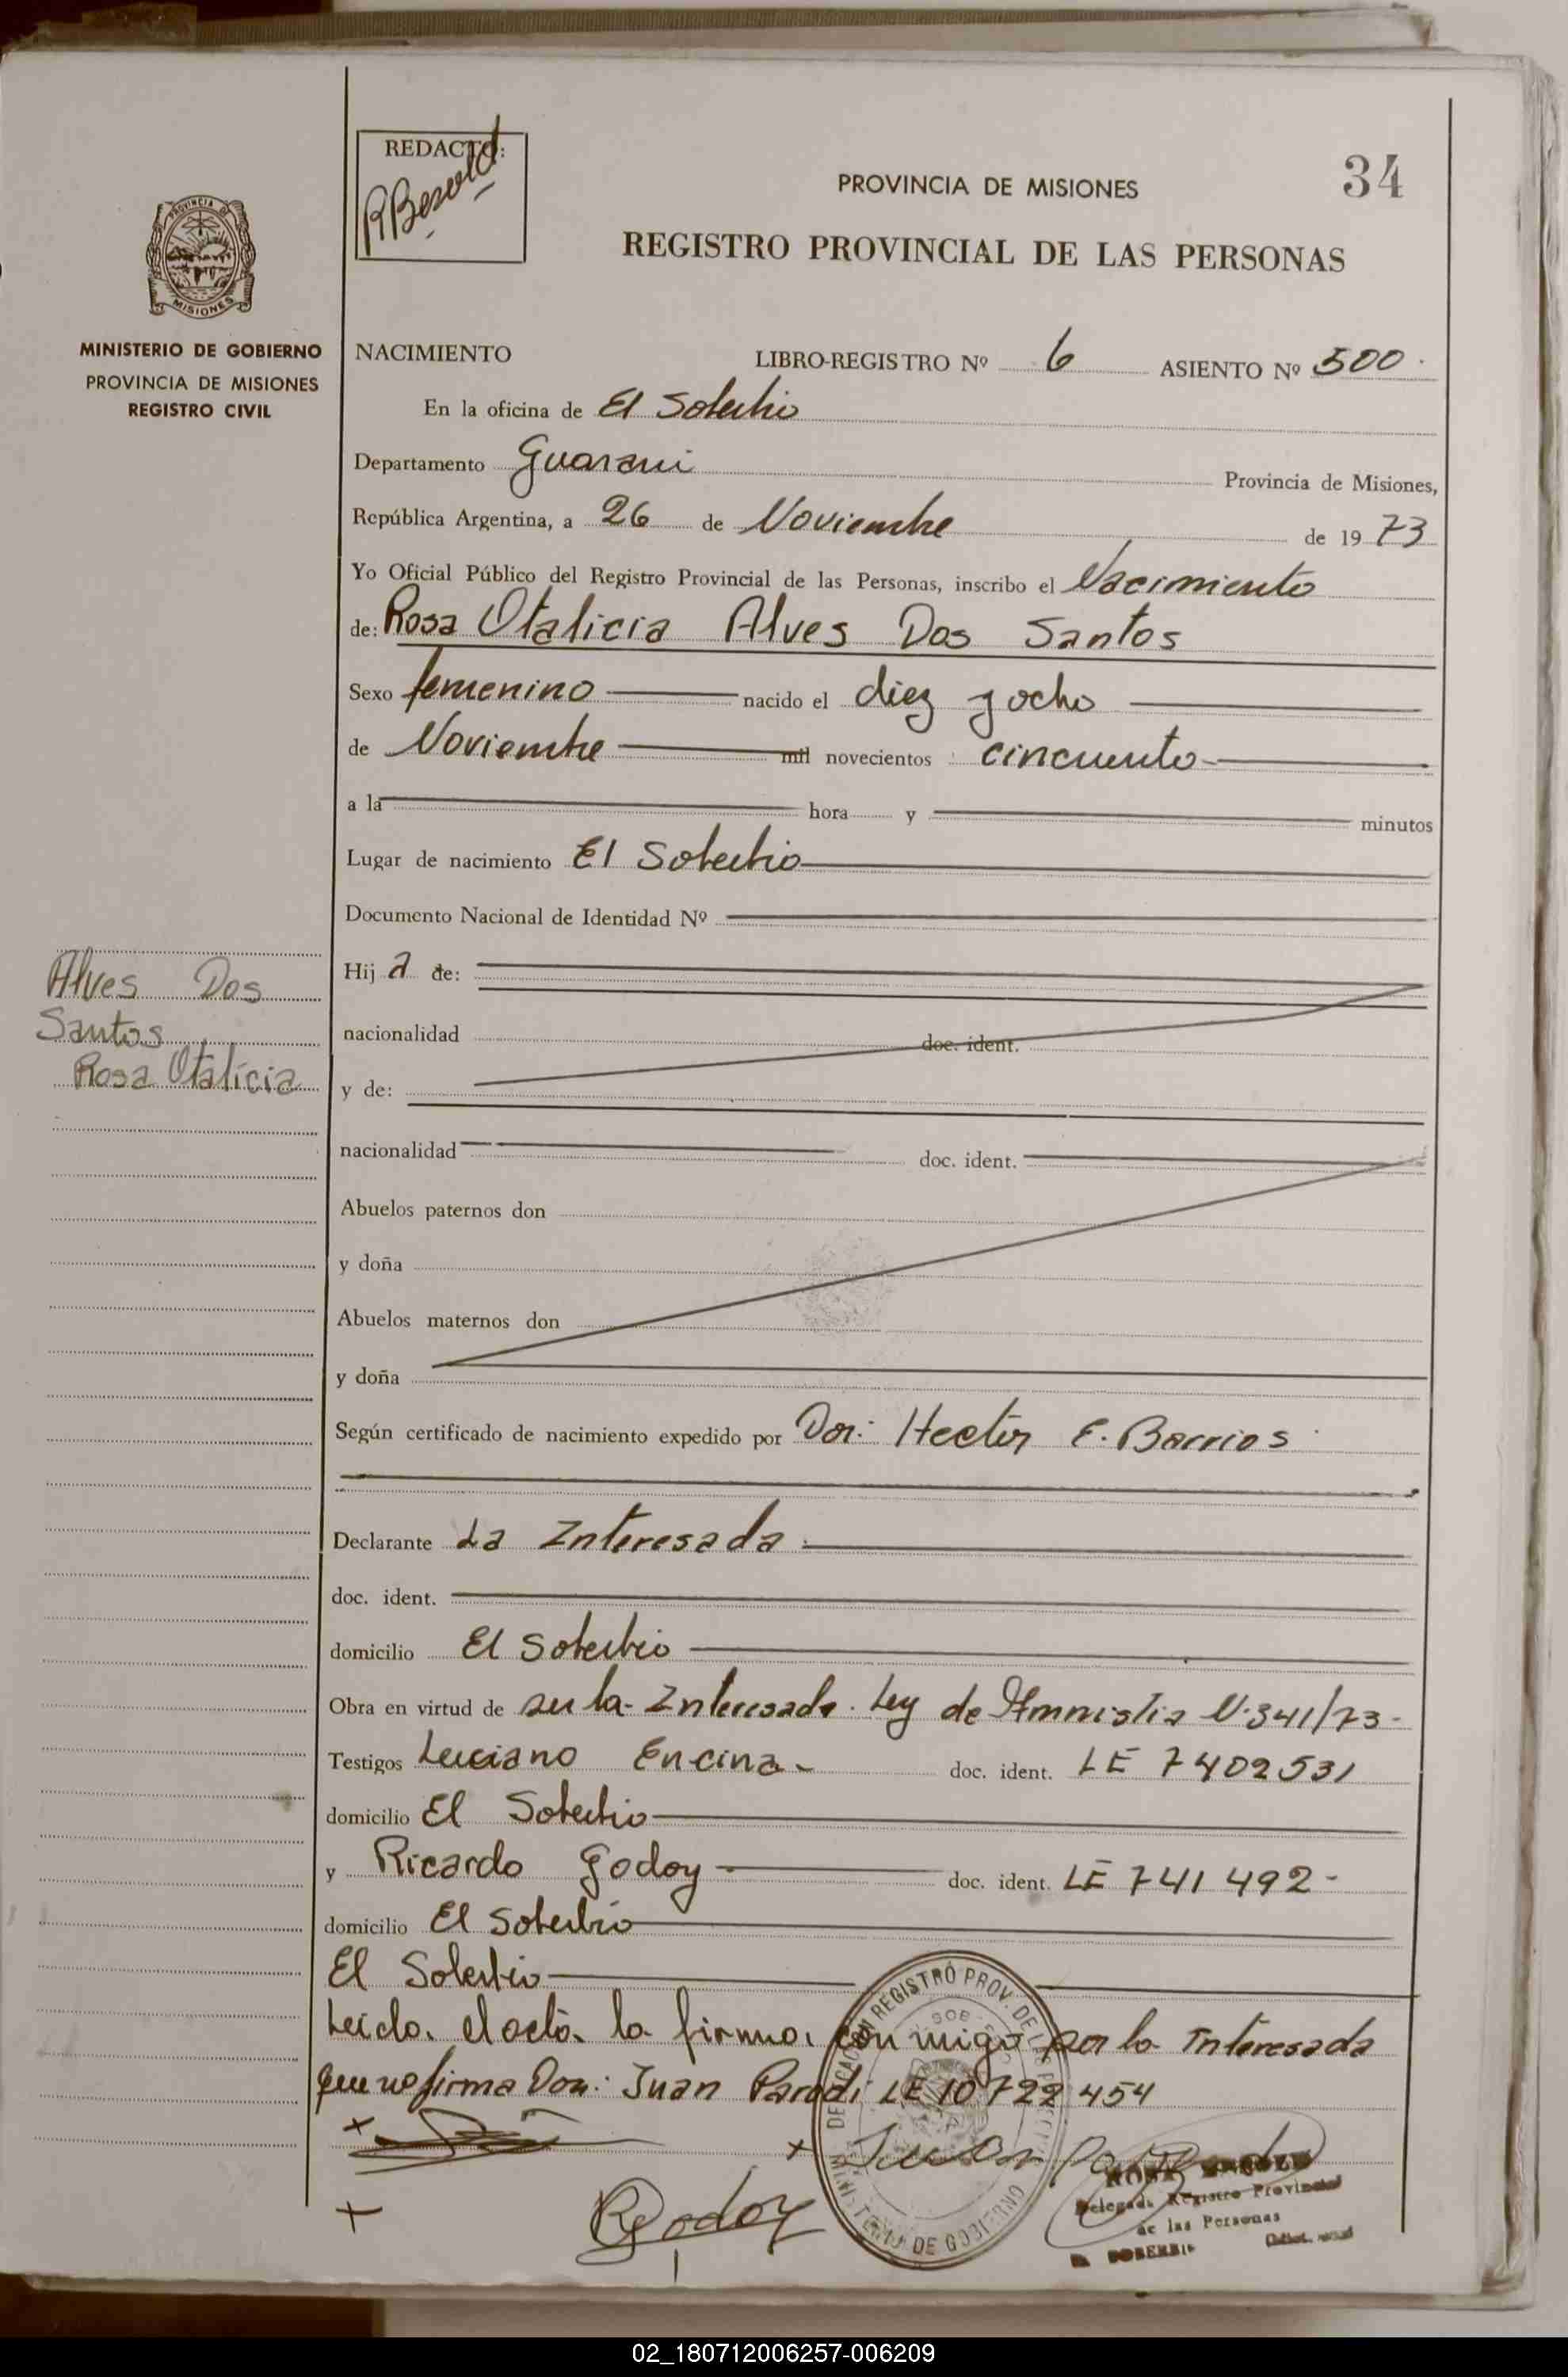 REDACTO:
RBesold
34
PROVINCIA DE MISIONES
REGISTRO PROVINCIAL DE LAS PERSONAS
PROVINCIA DE
MISIONES
MINISTERIO DE GOBIERNO
PROVINCIA DE MISIONES
REGISTRO CIVIL
NACIMIENTO LIBRO-REGISTRO Nº 6 ASIENTO Nº 500.
En la oficina de El Soberbio
Departamento Guarani Provincia de Misiones,
República Argentina, a 26 de Noviembre de 19 73
Yo Oficial Público del Registro Provincial de las Personas, inscribo el Nacimiento
de: Rosa Otalicia Alves Dos Santos
Sexo femenino nacido el diez y ocho
de Noviembre mil novecientos cincuenta
a la hora y minutos
Lugar de nacimiento El Soberbio
Documento Nacional de Identidad Nº
Alves Dos
Santos
Rosa Otalicia
Hij a de:
nacionalidad doc. ident.
y de:
nacionalidad doc. ident.
Abuelos paternos don
y doña
Abuelos maternos don
y doña
Según certificado de nacimiento expedido por Dor: Hector E. Barrios
Declarante La Interesada
doc. ident.
domicilio El Soberbio
Obra en virtud de ser la Interesada. Ley de Amnistia N.341/73-
Testigos Luciano Encina- doc. ident. LE 7402531
domicilio El Soberbio
y Ricardo Godoy doc. ident. LE 741 492-
domicilio El Soberbio
El Soberbio
Leida el acta la firma con migo por la Interesada
que no firma Don: Juan Parodi LE 10 722 454
Juan Parodi
RGodoy
DELEGACION REGISTRO PROV. DE LAS PERSONAS
MINISTERIO DE GOBIERNO
Delegada Registro Provincial
de las Personas
EL SOBERBIO
02_180712006257-006209